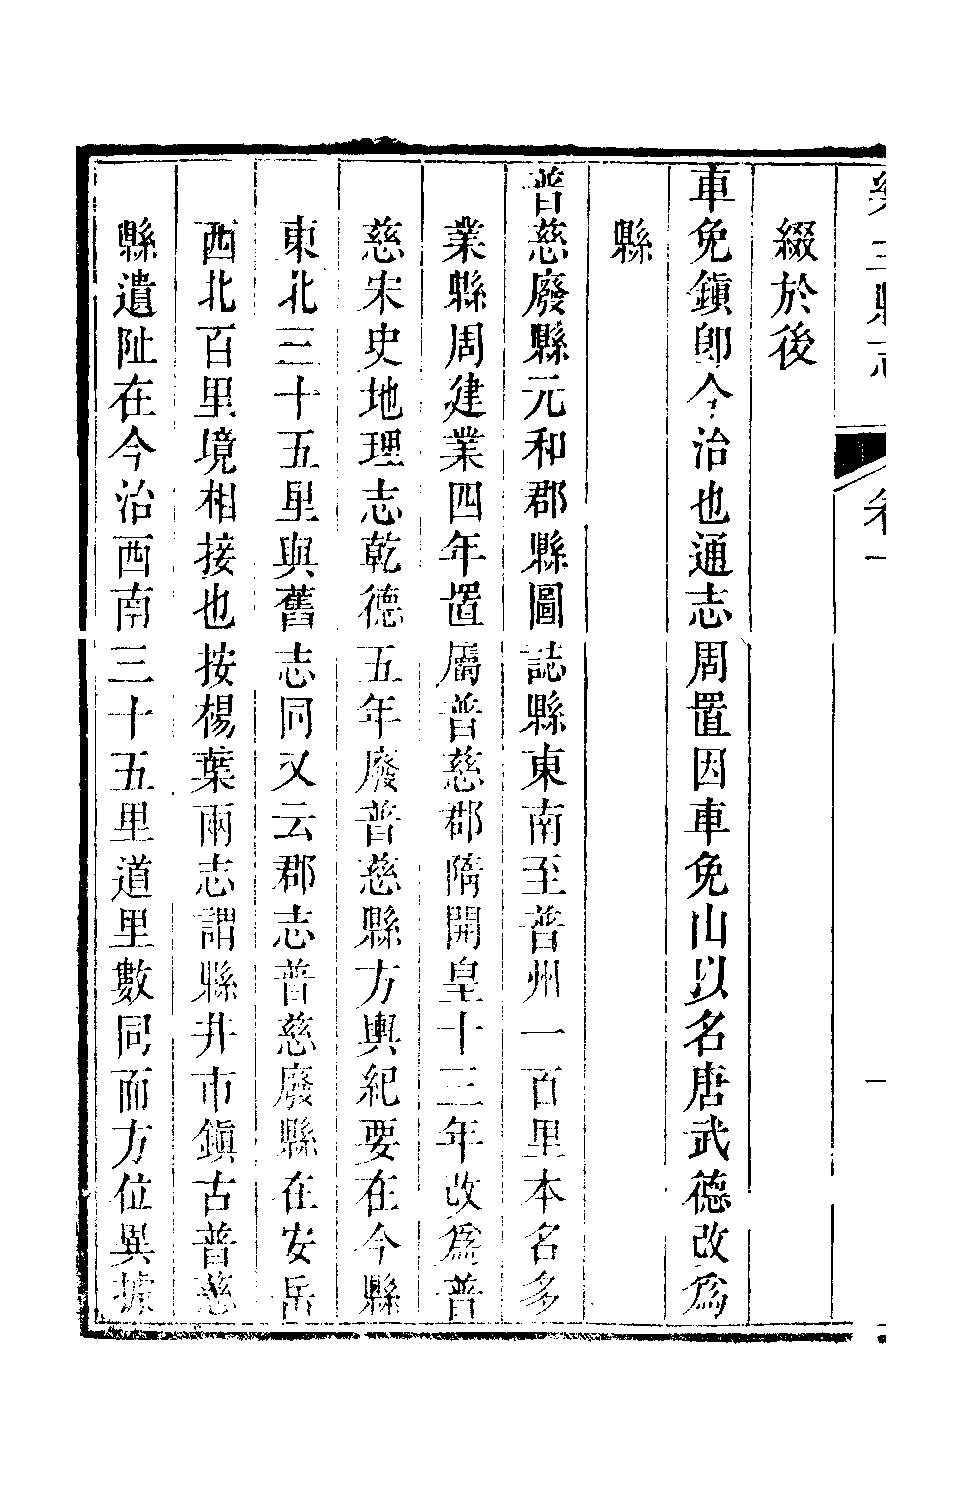 綴於後
車免鎭卽今治也通志周置因車免山以名唐武德改爲
縣
普慈廢縣元和郡縣圖誌縣東南至普州一百里本名多
業縣周建業四年置屬普慈郡隋開皇十三年改爲普
慈宋史地理志乾德五年廢普慈縣方輿紀要在今縣
東北三十五里與舊志同又云郡志普慈廢縣在安岳
西北百里境相接也按楊葉兩志謂縣井市鎭古普慈
縣遺趾在今治西南三十五里道里數同而方位異據